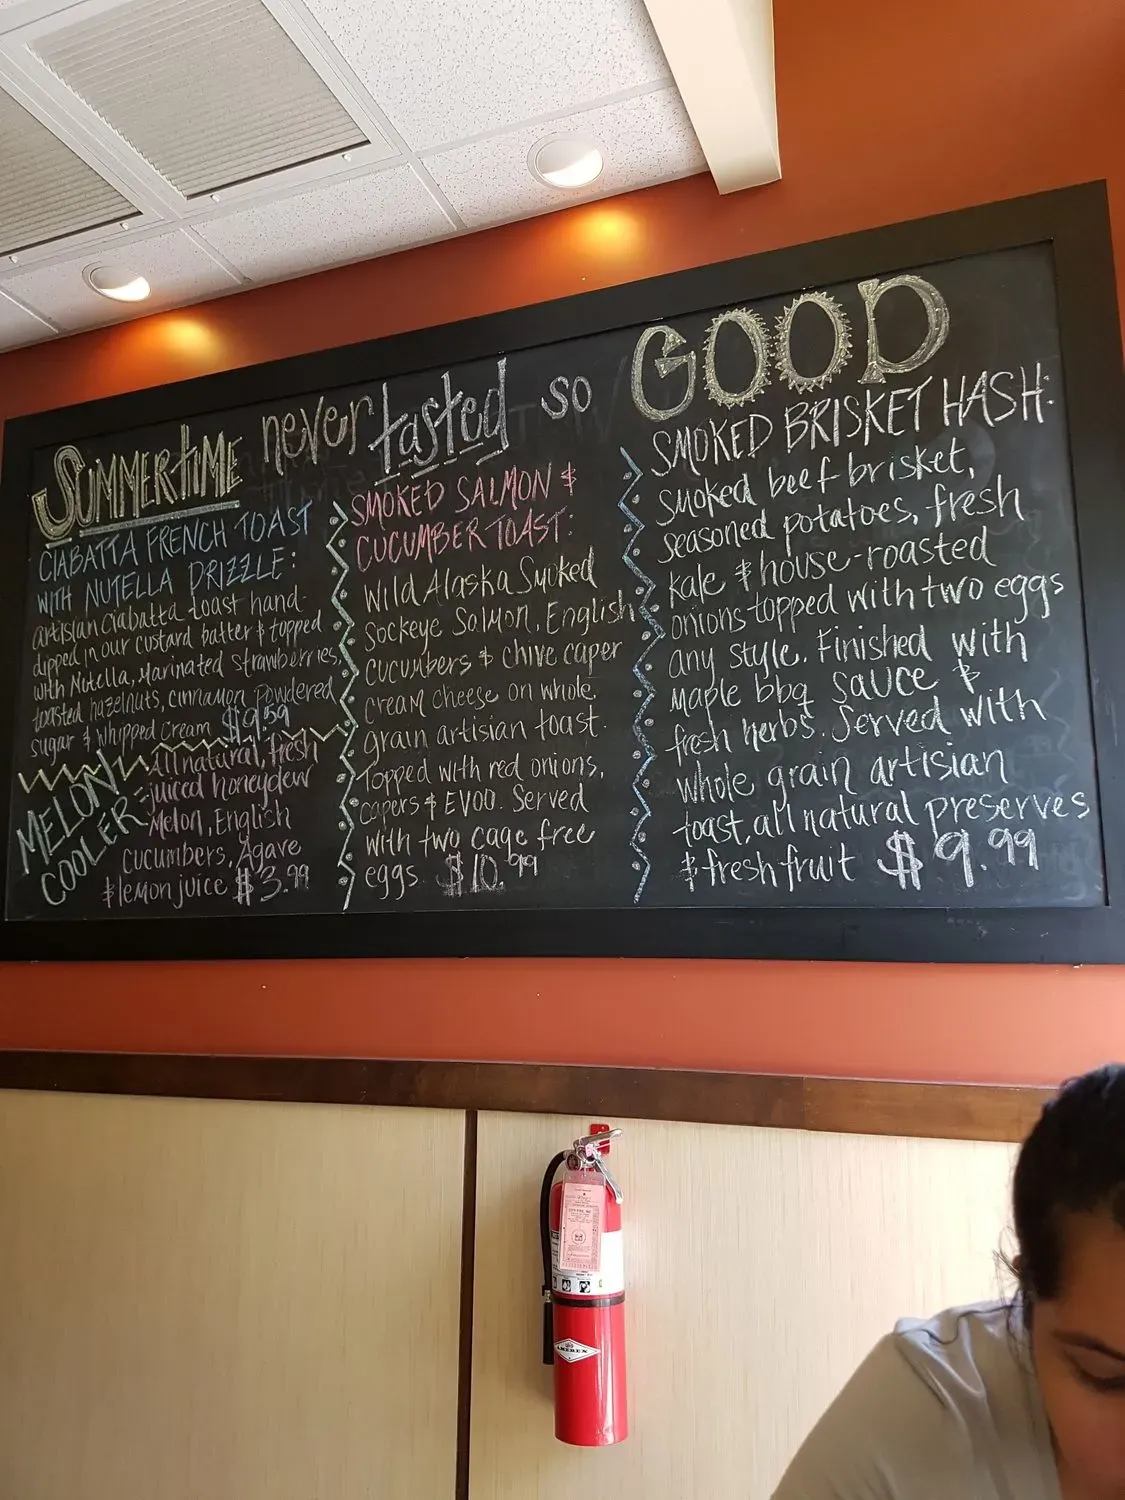 SUMMERTIME never tasted so GOOD
CIABATTA FRENCH TOAST
WITH NUTELLA DRIZZLE:
artisian ciabatta toast hand-
dipped in our custard batter & topped
with Nutella, Marinated strawberries,
toasted hazelnuts, cinnamon powdered
sugar & whipped cream $9.59
MELON
COOLER:
All natural, fresh
juiced honeydew
Melon, English
cucumbers, Agave
& lemon juice $3.99
SMOKED SALMON &
CUCUMBER TOAST:
Wild Alaska Smoked
Sockeye Salmon, English
cucumbers & chive caper
cream cheese on whole
grain artisian toast.
Topped with red onions,
capers & EVOO. Served
with two cage free
eggs $10.99
SMOKED BRISKET HASH:
smoked beef brisket,
seasoned potatoes, fresh
kale & house-roasted
onions topped with two eggs
any style. Finished with
maple bbq sauce &
fresh herbs. Served with
whole grain artisian
toast, all natural preserves
& fresh fruit $9.99
AMEREX